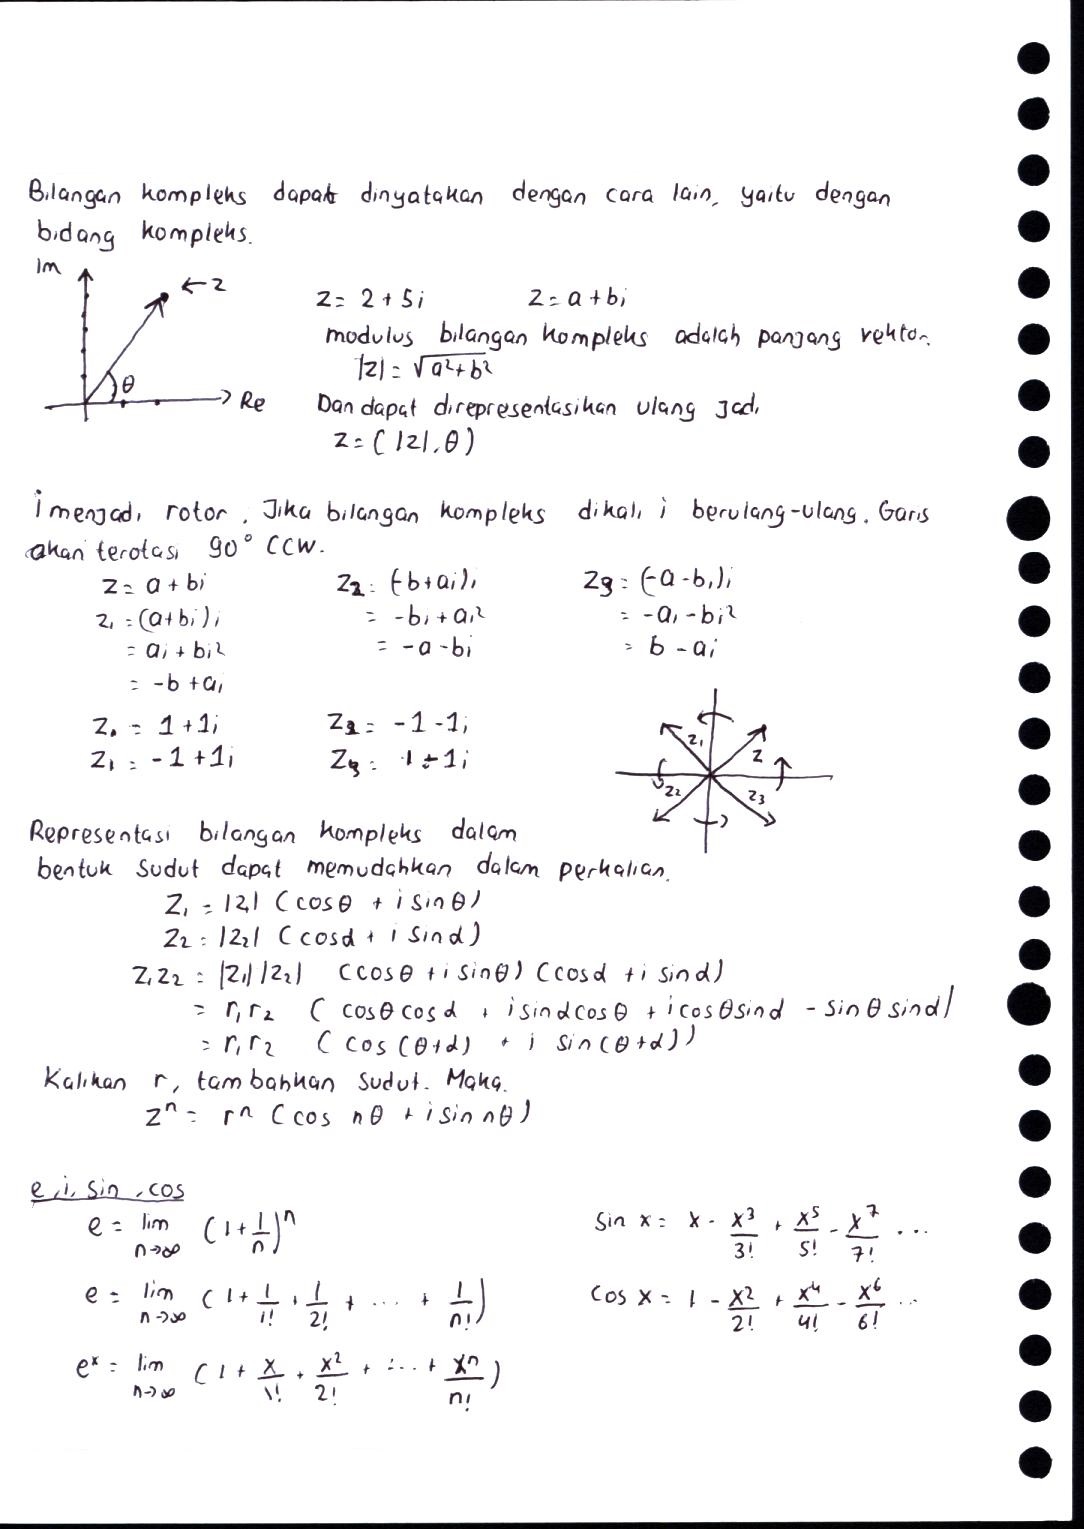 Bilangan kompleks dapat dinyatakan dengan cara lain, yaitu dengan
bidang kompleks.
Im
← z
θ
Re
z = 2 + 5i
z = a + bi
modulus bilangan kompleks adalah panjang vektor.
|z| = √(a² + b²)
Dan dapat direpresentasikan ulang jadi
z = (|z|, θ)
i menjadi rotor. Jika bilangan kompleks dikali i berulang-ulang. Garis
akan terotasi 90° CCW.
z = a + bi
z₁ = (a+bi)i
= ai + bi²
= -b + ai
z₂ = (-b+ai)i
= -bi + ai²
= -a - bi
z₃ = (-a - bi)i
= -ai - bi²
= b - ai
z₀ = 1 + 1i
z₁ = -1 + 1i
z₂ = -1 - 1i
z₃ = 1 - 1i
z₁
z
z₂
z₃
Representasi bilangan kompleks dalam
bentuk sudut dapat memudahkan dalam perkalian.
z₁ = |z₁| (cos θ + i sin θ)
z₂ = |z₂| (cos α + i sin α)
z₁z₂ = |z₁| |z₂| (cos θ + i sin θ) (cos α + i sin α)
= r₁r₂ (cos θ cos α + i sin α cos θ + i cos θ sin α - sin θ sin α)
= r₁r₂ (cos(θ+α) + i sin(θ+α))
Kalikan r, tambahkan sudut. Maka.
zⁿ = rⁿ (cos nθ + i sin nθ)
e, i, sin, cos
e = lim n→∞ (1 + 1/n)ⁿ
e = lim n→∞ (1 + 1/1! + 1/2! + ... + 1/n!)
eˣ = lim n→∞ (1 + x/1! + x²/2! + ... + xⁿ/n!)
sin x = x - x³/3! + x⁵/5! - x⁷/7! ...
cos x = 1 - x²/2! + x⁴/4! - x⁶/6! ...